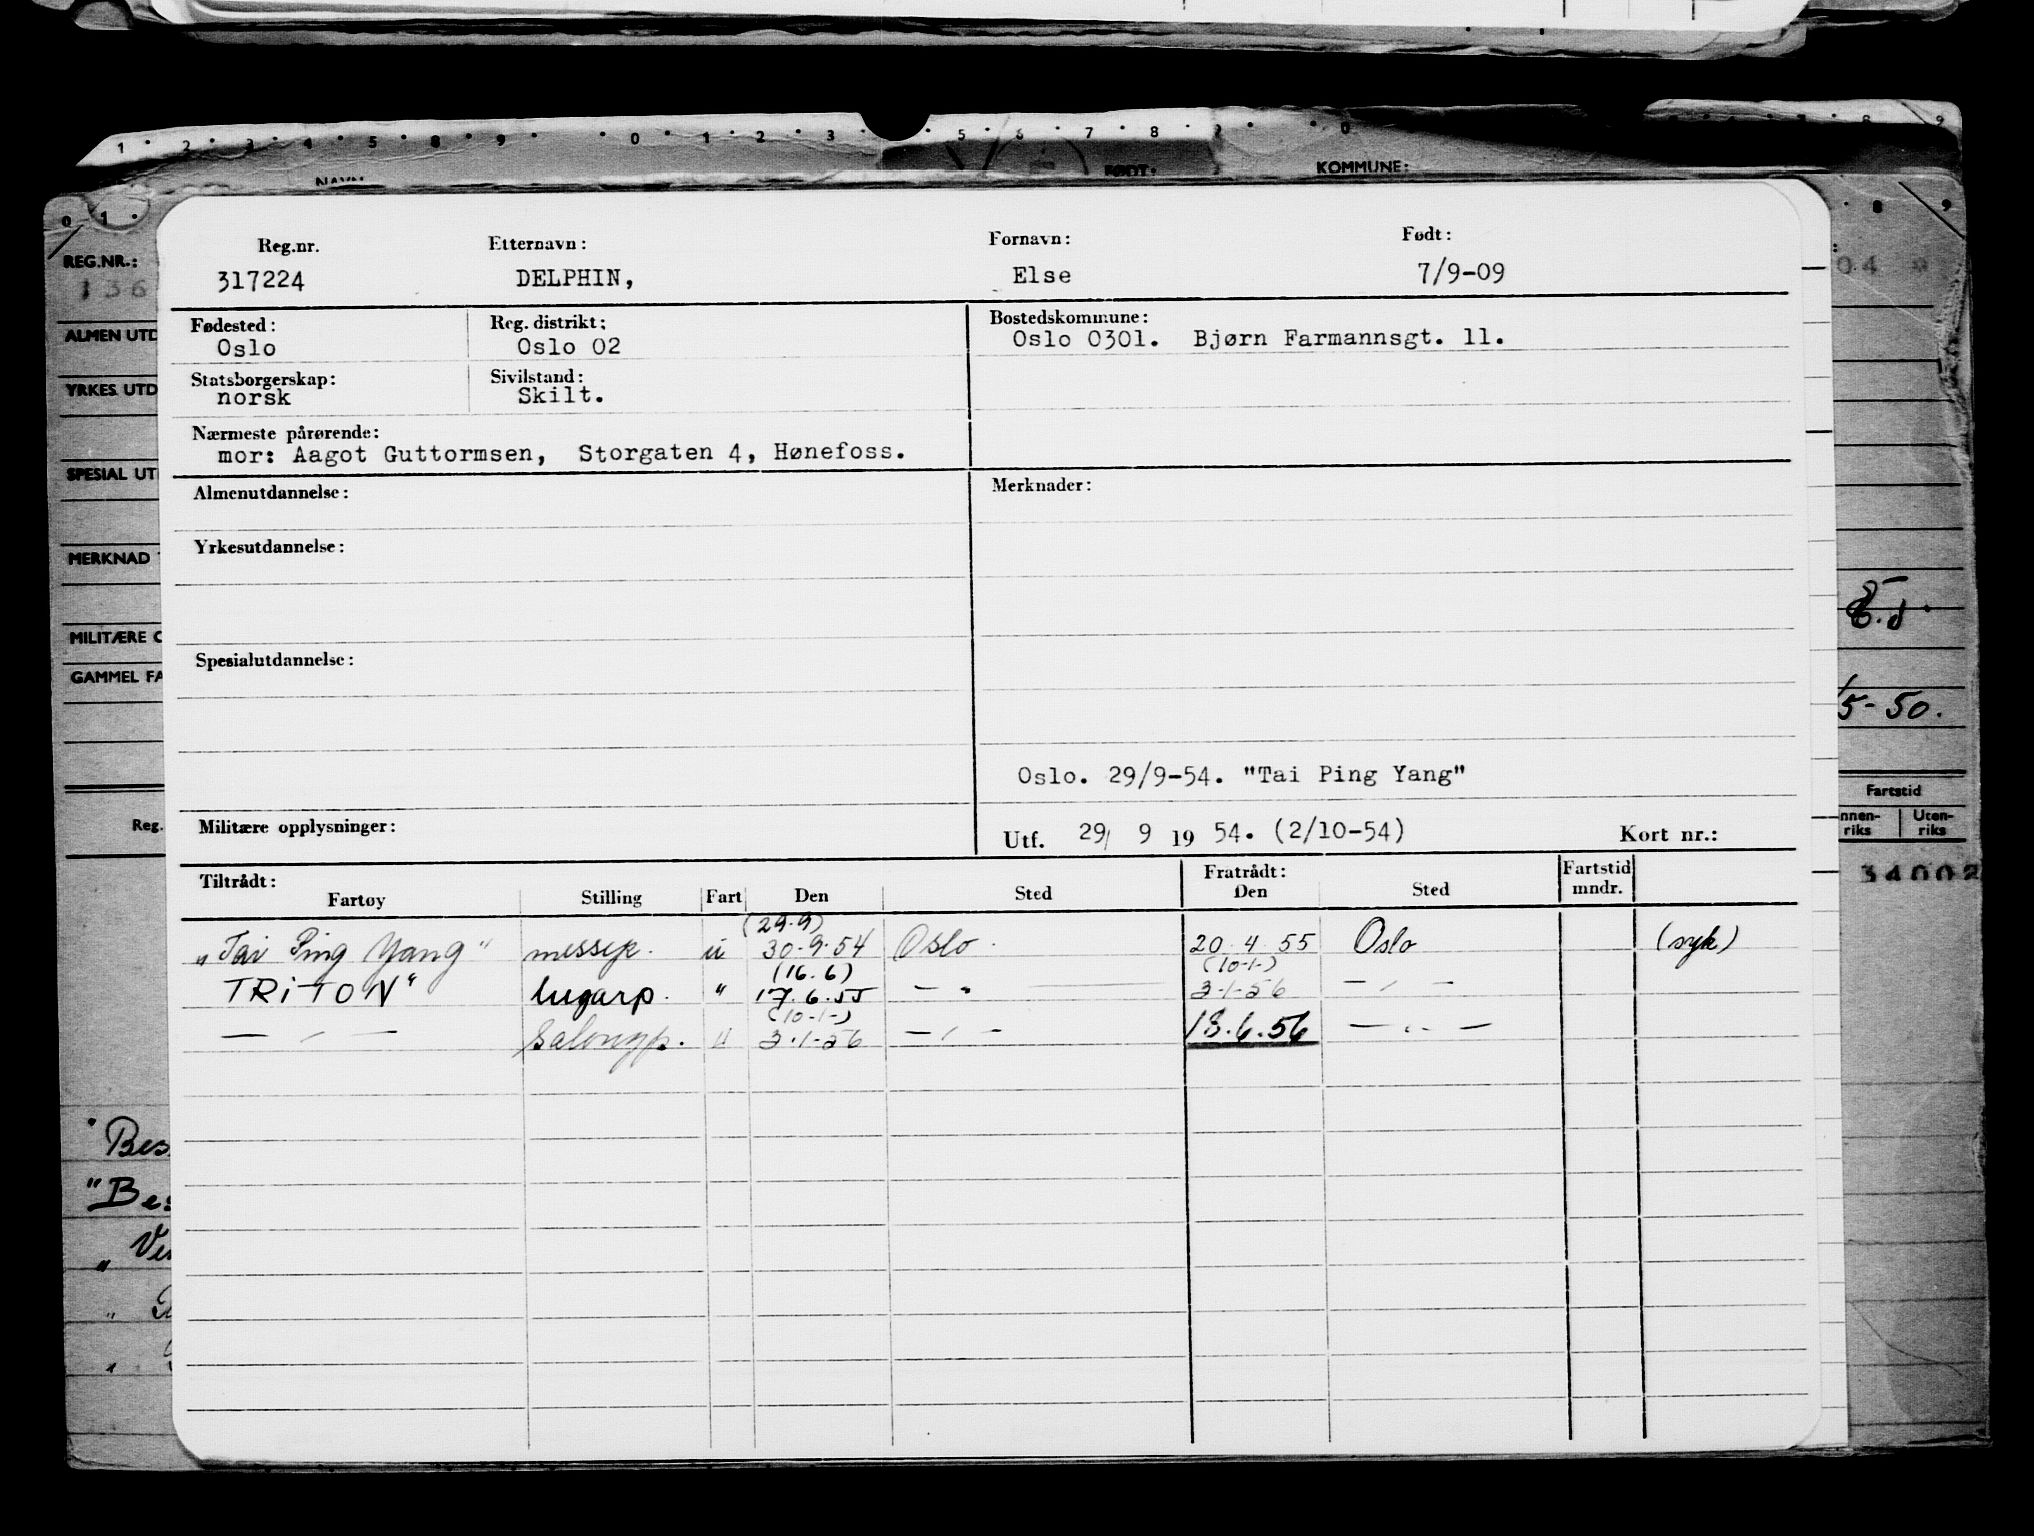 1 2 3 4 5 8 9 0 1 2 3 5 6 7 8 9 0 8 9
NAVN FØDT: KOMMUNE:
0 1 8 9
Reg.nr. Etternavn: Fornavn: Født:
317224 DELPHIN, Else 7/9-09
Fødested: Reg. distrikt: Bostedskommune:
Oslo Oslo 02 Oslo 0301. Bjørn Farmannsgt. 11.
Statsborgerskap: Sivilstand:
norsk Skilt.
Nærmeste pårørende:
mor: Aagot Guttormsen, Storgaten 4, Hønefoss.
Almenutdannelse: Merknader:
Yrkesutdannelse:
Spesialutdannelse:
Oslo. 29/9-54. "Tai Ping Yang"
Militære opplysninger: Utf. 29/ 9 19 54. (2/10-54) Kort nr.:
Tiltrådt: Fratrådt: Fartstid
Fartøy Stilling Fart Den Sted Den Sted mndr.
(29.9)
"Tai Ping Yang" messep. u 30-9-54 Oslo 20 4 55 Oslo (syk)
(16.6) (10-1-)
TRITON" lugarp. " 17.6.55 — " — 3-1-56 — " —
(10-1-)
— " — salongp. " 3-1-56 — " — 18.6.56 — " —
REG.NR.:
136
ALMEN UTD
YRKES UTD
SPESIAL UT
MERKNAD
MILITÆRE O
GAMMEL FA
Reg.
Bes
"Bes
04 9
5-50.
Fartstid
nnen-riks Uten-riks
34002